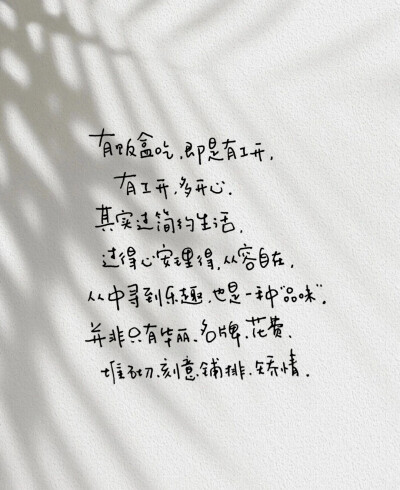 有饭盒吃.即是有工开,
有工开,多开心.
其实过简约生活,
过得心安理得,从容自在,
从中寻到乐趣.也是一种"品味".
并非只有华丽、名牌、花费、
堆砌、刻意、铺排、矫情.